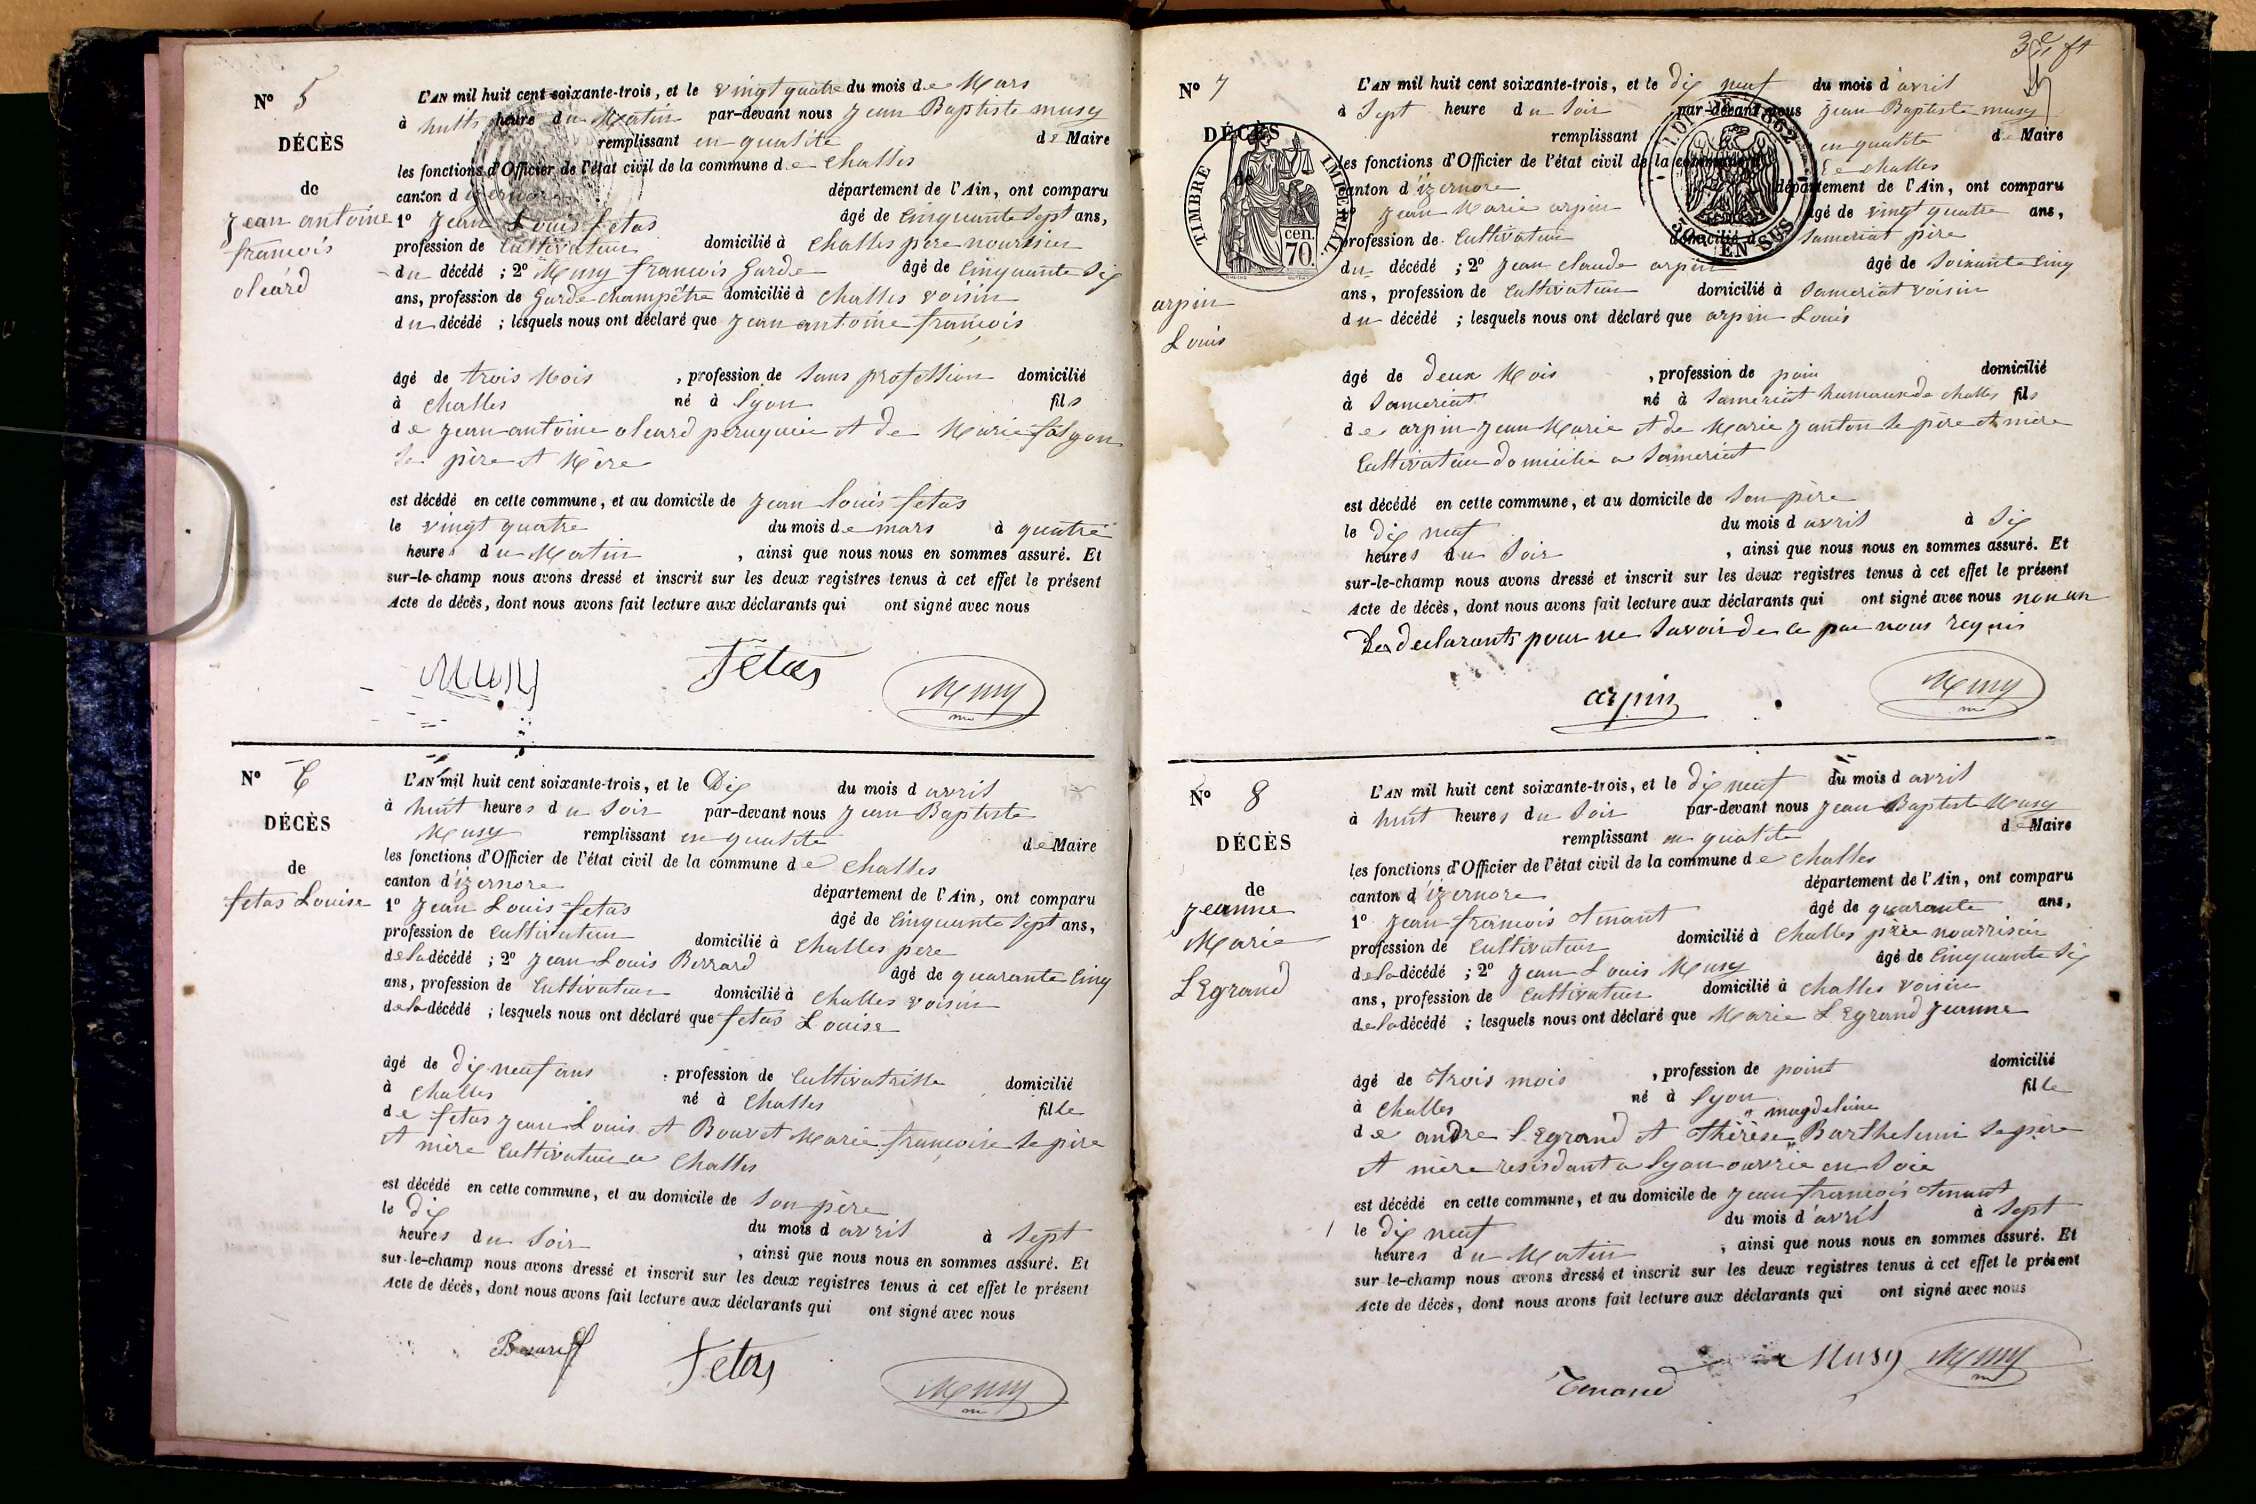 N° 5
DÉCÈS
de
jean antoine
francois
oléard
L'AN mil huit cent soixante-trois, et le vingt quatre du mois de Mars
à huitt heure du Matin par-devant nous jean Baptiste musy
remplissant en qualité de Maire
les fonctions d'Officier de l'état civil de la commune de Challes
canton d département de l'Ain, ont comparu
1° jean Louis fetas âgé de Cinquante Sept ans,
profession de Cultivateur domicilié à Challes père nourisier
du décédé ; 2° Musy francois Garde âgé de Cinquante Six
ans, profession de Garde champêtre domicilié à Challes voisin
du décédé ; lesquels nous ont déclaré que jean antoine francois
âgé de trois Mois , profession de Sans profession domicilié
à Challes né à Lyon fils
de jean antoine oleard peruquié et de Marie falyon
Se père et Mère
est décédé en cette commune, et au domicile de jean Louis fetas
le vingt quatre du mois de mars à quatre
heures du Matin , ainsi que nous nous en sommes assuré. Et
sur-le-champ nous avons dressé et inscrit sur les deux registres tenus à cet effet le présent
Acte de décès, dont nous avons fait lecture aux déclarants qui ont signé avec nous
Musy Fetas Musy
N° 6
DÉCÈS
de
fetas Louise
L'AN mil huit cent soixante-trois, et le Dix du mois d avril
à huit heures du Soir par-devant nous jean Baptiste
Musy remplissant en qualite de Maire
les fonctions d'Officier de l'état civil de la commune de Challes
canton d'izernore département de l'Ain, ont comparu
1° jean Louis fetas âgé de Cinquante Sept ans,
profession de Cultivateur domicilié à Challes pere
de la décédé ; 2° jean Louis Berrard âgé de quarante Cinq
ans, profession de Cultivateur domicilié à Challes voisin
de la décédé ; lesquels nous ont déclaré que fetas Louise
âgé de dix neuf ans , profession de Cultivatrisse domicilié
à Challes né à Challes fille
de fetas jean Louis et Bouvet Marie francoise Se père
et mère Cultivateur a Challes
est décédé en cette commune, et au domicile de Son père
le dix du mois d avril à Sept
heures du Soir , ainsi que nous nous en sommes assuré. Et
sur-le-champ nous avons dressé et inscrit sur les deux registres tenus à cet effet le présent
Acte de décès, dont nous avons fait lecture aux déclarants qui ont signé avec nous
Fetas Musy
3e ft
N° 7
DÉCÈS
de
TIMBRE IMPÉRIAL
70 cen.
1862
EN SUS
arpin
Louis
L'AN mil huit cent soixante-trois, et le dix neuf du mois d'avril
à Sept heure du Soir par-devant nous jean Baptiste musy
remplissant en qualite de Maire
les fonctions d'Officier de l'état civil de la commune de challes
canton d'izernore département de l'Ain, ont comparu
1° jean Marie arpin âgé de vingt quatre ans,
profession de Cultivateur domicilié à Sameriat père
du décédé ; 2° jean claude arpin âgé de Soixante Cinq
ans, profession de Cultivateur domicilié à Sameriat voisin
du décédé ; lesquels nous ont déclaré que arpin Louis
âgé de deux Mois , profession de poin domicilié
à Sameriat né à Sameriat hamaux de challes fils
de arpin jean Marie et de Marie janton Se père et mère
Cultivateur domicilie a Sameriat
est décédé en cette commune, et au domicile de Son père
le dix neuf du mois d avril à Six
heures du Soir , ainsi que nous nous en sommes assuré. Et
sur-le-champ nous avons dressé et inscrit sur les deux registres tenus à cet effet le présent
Acte de décès, dont nous avons fait lecture aux déclarants qui ont signé avec nous non un
Des declarants pour ne Savoir de ce par nous reqnis
arpin Musy
N° 8
DÉCÈS
de
jeanne
Marie
LEgrand
L'AN mil huit cent soixante-trois, et le dix neuf du mois d avril
à huit heures du Soir par-devant nous jean Baptiste Musy
remplissant en qualite de Maire
les fonctions d'Officier de l'état civil de la commune de Challes
canton d'izernore département de l'Ain, ont comparu
1° jean francois tenant âgé de quarante ans,
profession de Cultivateur domicilié à Challes père nourrisier
de la décédé ; 2° jean Louis Musy âgé de Cinquante Six
ans, profession de Cultivateur domicilié à Challes voisin
de la décédé ; lesquels nous ont déclaré que Marie LEgrand jeanne
âgé de trois mois , profession de point domicilié
à Challes né à Lyon fille
magdeleine
de andre LEgrand et thérèse Barthelemi Se père
et mère resisdant a Lyon ouvrie en Soie
est décédé en cette commune, et au domicile de jean francois tenant
le dix neuf du mois d'avril à Sept
heures du Matin , ainsi que nous nous en sommes assuré. Et
sur-le-champ nous avons dressé et inscrit sur les deux registres tenus à cet effet le présent
Acte de décès, dont nous avons fait lecture aux déclarants qui ont signé avec nous
Tenand Musy Musy